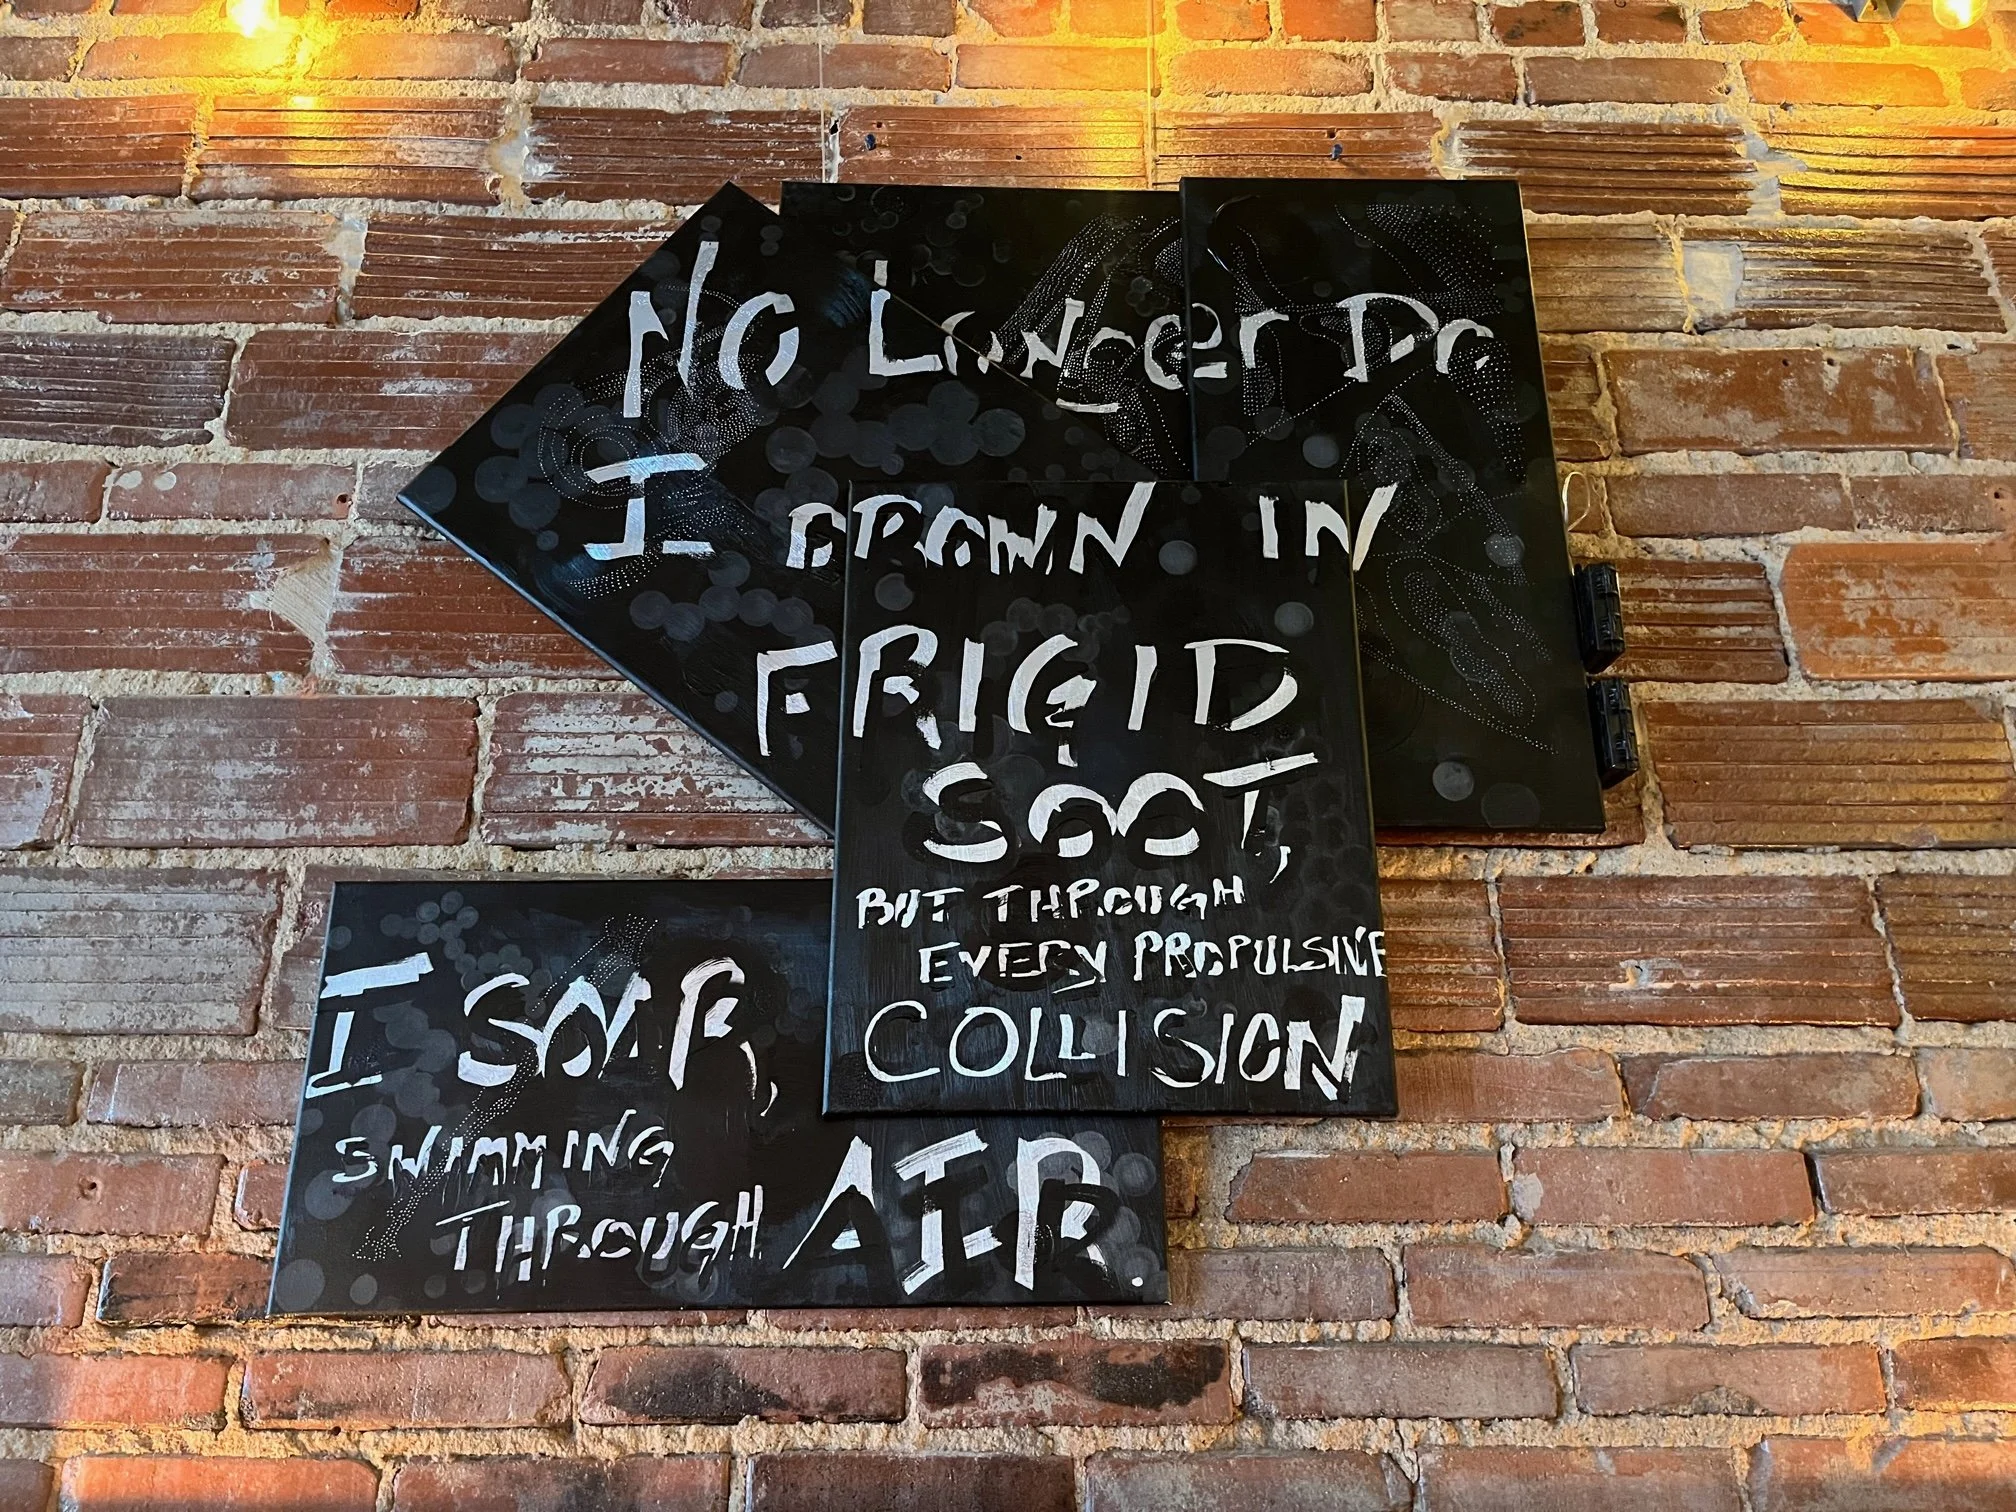 No Longer Do
I DROWN IN
FRIGID
SOOT,
BUT THROUGH
EVERY PROPULSIVE
COLLISION
I SOAR,
SWIMMING
THROUGH AIR.